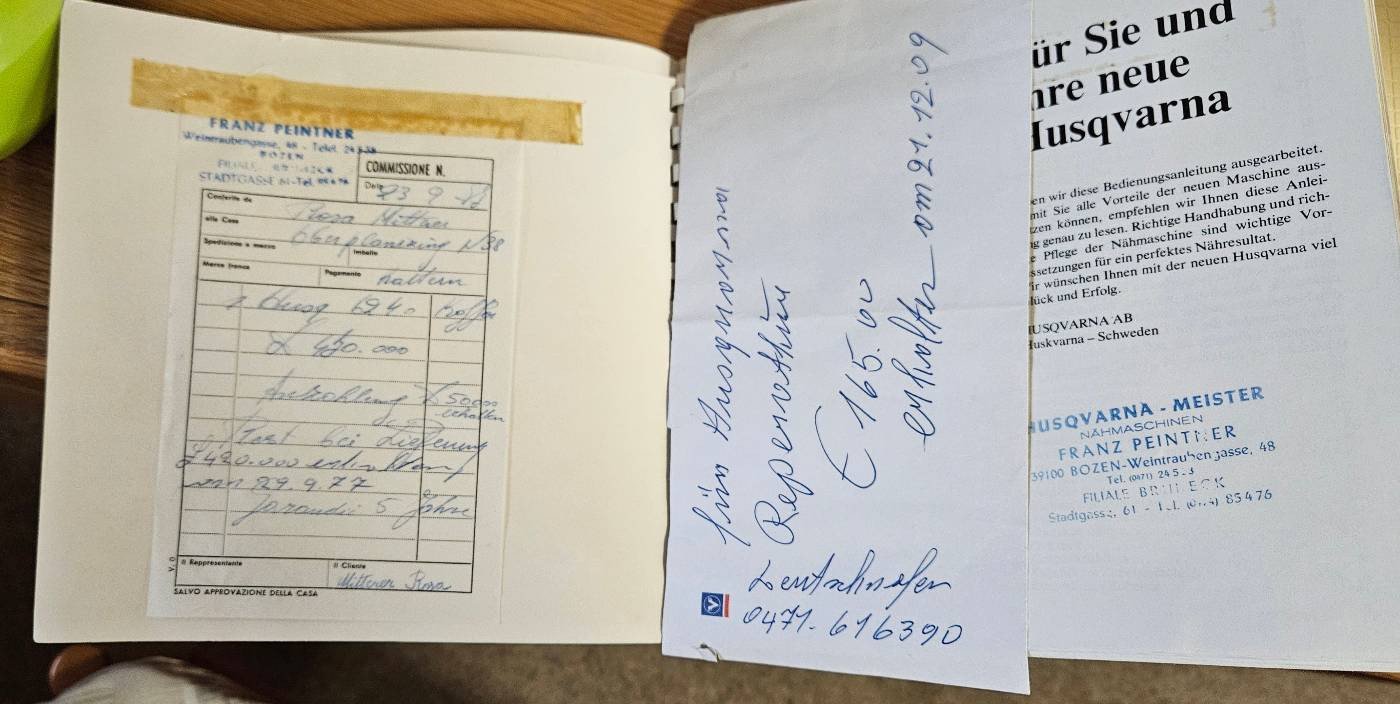 FRANZ PEINTNER
Weintraubengasse, 48 - Telef.
BOZEN
FILIALE
STADTGASSE 61-Tel.
COMMISSIONE N.
Data 23 9 77
Conferita da Rosa Mitterer
alla Casa Oberplanezing N 38
Spedizione a mezzo
Imballo
Merce franco
Pagamento Kaltern
1 Husq Koffer
£ 450.000
Anzahlung £ 50000
erhalten
Rest bei Lieferung
£ 420.000 erhalten
am 29.9.77
Garandie 5 Jahre
Il Rappresentante
Il Cliente
Mitterer Rosa
SALVO APPROVAZIONE DELLA CASA
für Husquarna
Reperathur
€ 165.00
erhalten am 21.12.09
Deutschnofen
0471-616390
ür Sie und
hre neue
Husqvarna
en wir diese Bedienungsanleitung ausgearbeitet.
mit Sie alle Vorteile der neuen Maschine aus-
zen können, empfehlen wir Ihnen diese Anlei-
g genau zu lesen. Richtige Handhabung und rich-
e Pflege der Nähmaschine sind wichtige Vor-
ssetzungen für ein perfektes Nähresultat.
ir wünschen Ihnen mit der neuen Husqvarna viel
lück und Erfolg.
USQVARNA AB
uskvarna – Schweden
HUSQVARNA - MEISTER
NÄHMASCHINEN
FRANZ PEINTNER
39100 BOZEN-Weintraubengasse, 48
Tel. (0471)
FILIALE BRUNECK
Stadtgasse, 61 - Tel. 85476